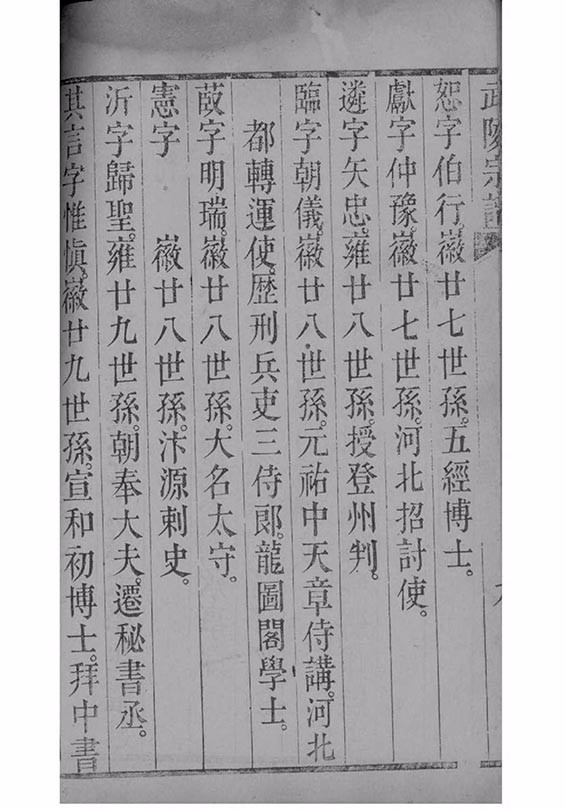 武陵宗譜
恕字伯行。徽廿七世孫。五經博士。
獻字仲豫。徽廿七世孫。河北招討使。
遴字矢忠。雍廿八世孫。授登州判。
臨字朝儀。徽廿八世孫。元祐中天章侍講。河北
都轉運使。歴刑兵吏三侍郎。龍圖閣學士。
葮字明瑞。徽廿八世孫。大名太守。
憲字　　徽廿八世孫。汴源刺史。
沂字歸聖。雍廿九世孫。朝奉大夫。遷秘書丞。
其言字惟慎。徽廿九世孫。宣和初博士。拜中書